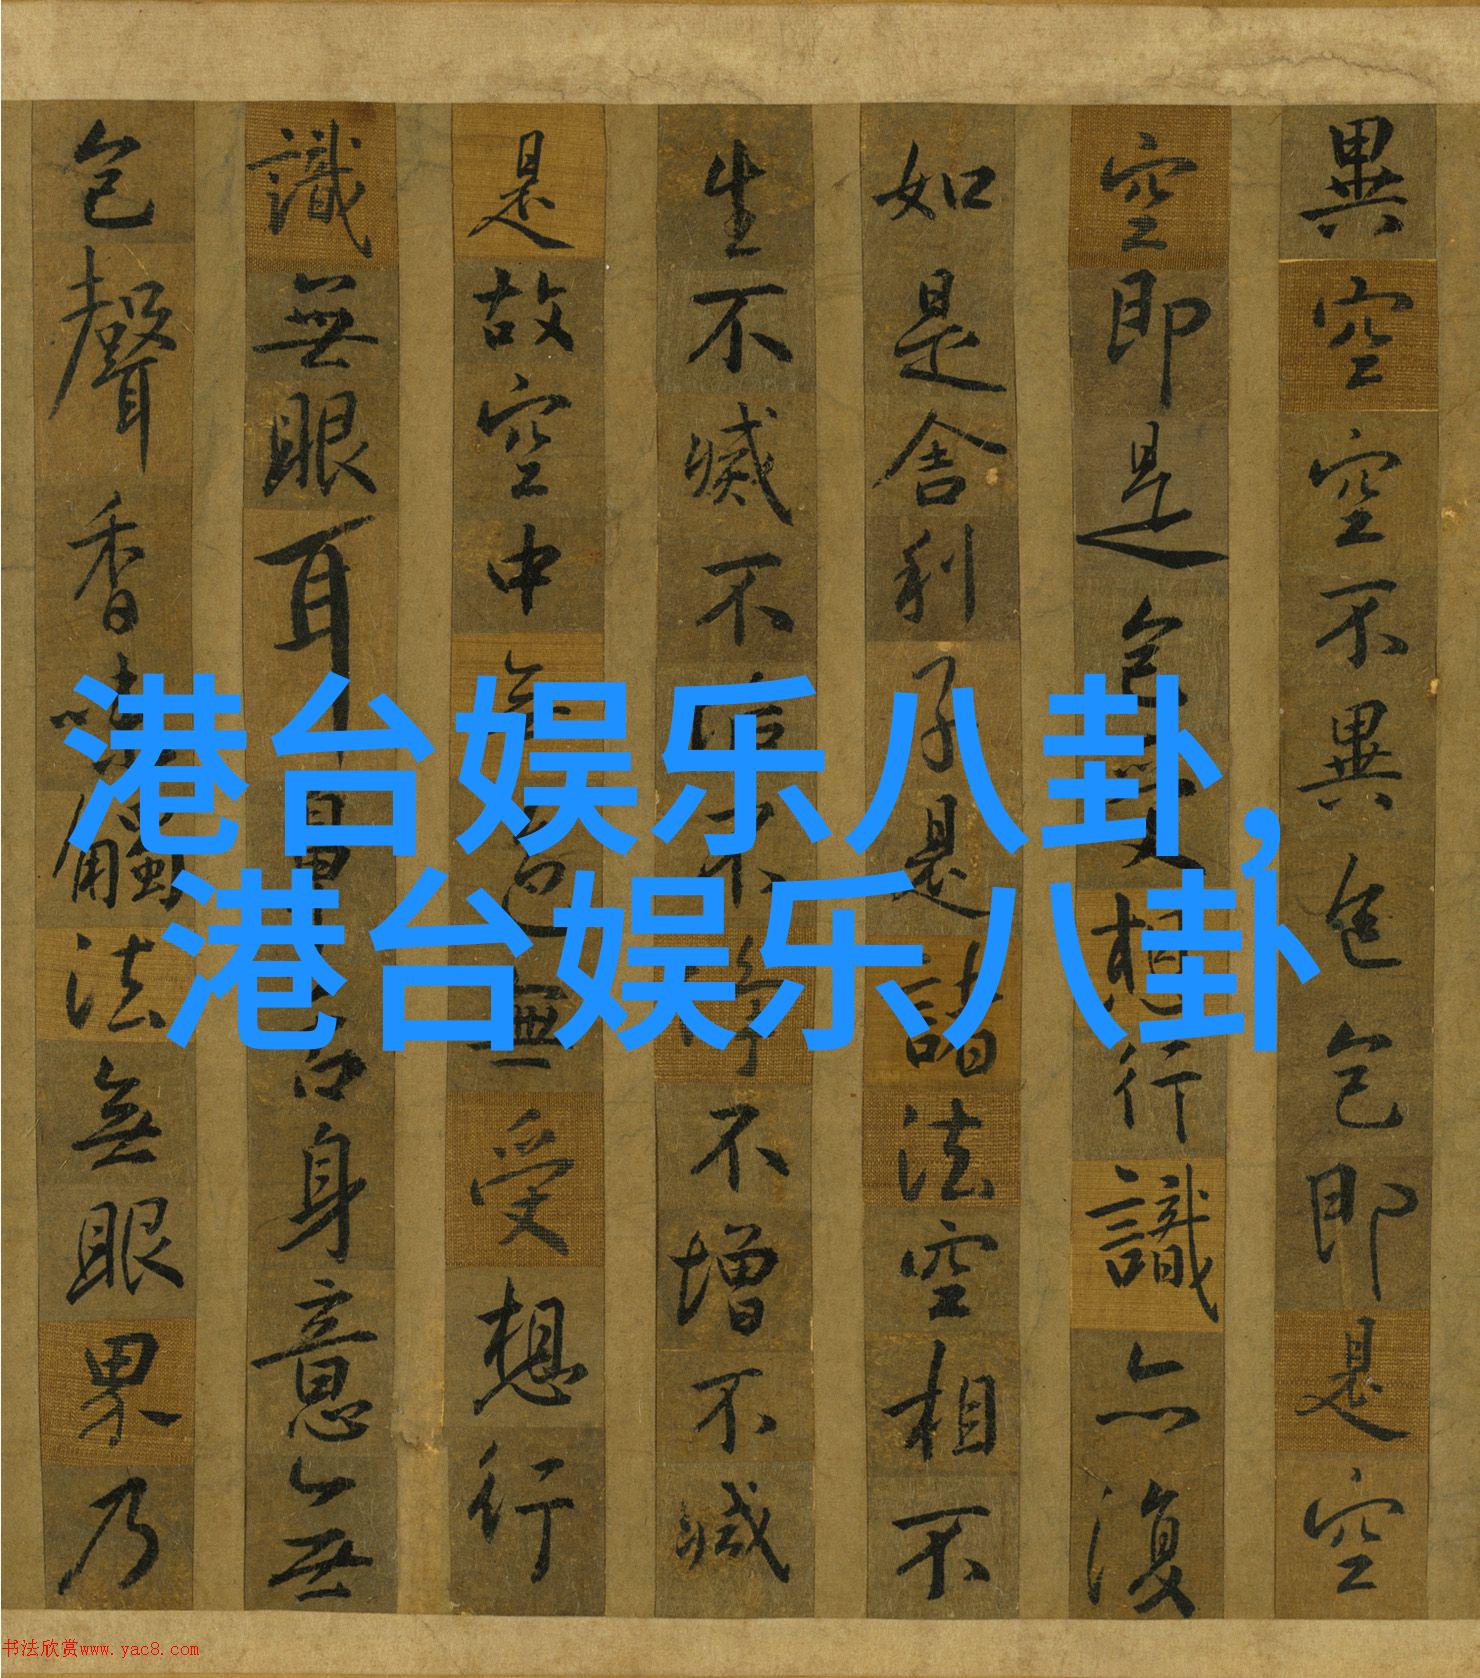 異空空不異色色即是空
空即是色受想行識亦復
如是舍利子是諸法空相不
生不滅不垢不淨不增不減
是故空中無色無受想行
識無眼耳鼻舌身意無
色聲香味觸法無眼界乃
港台娱乐八卦,
港台娱乐八卦
书法欣赏www.yac8.com